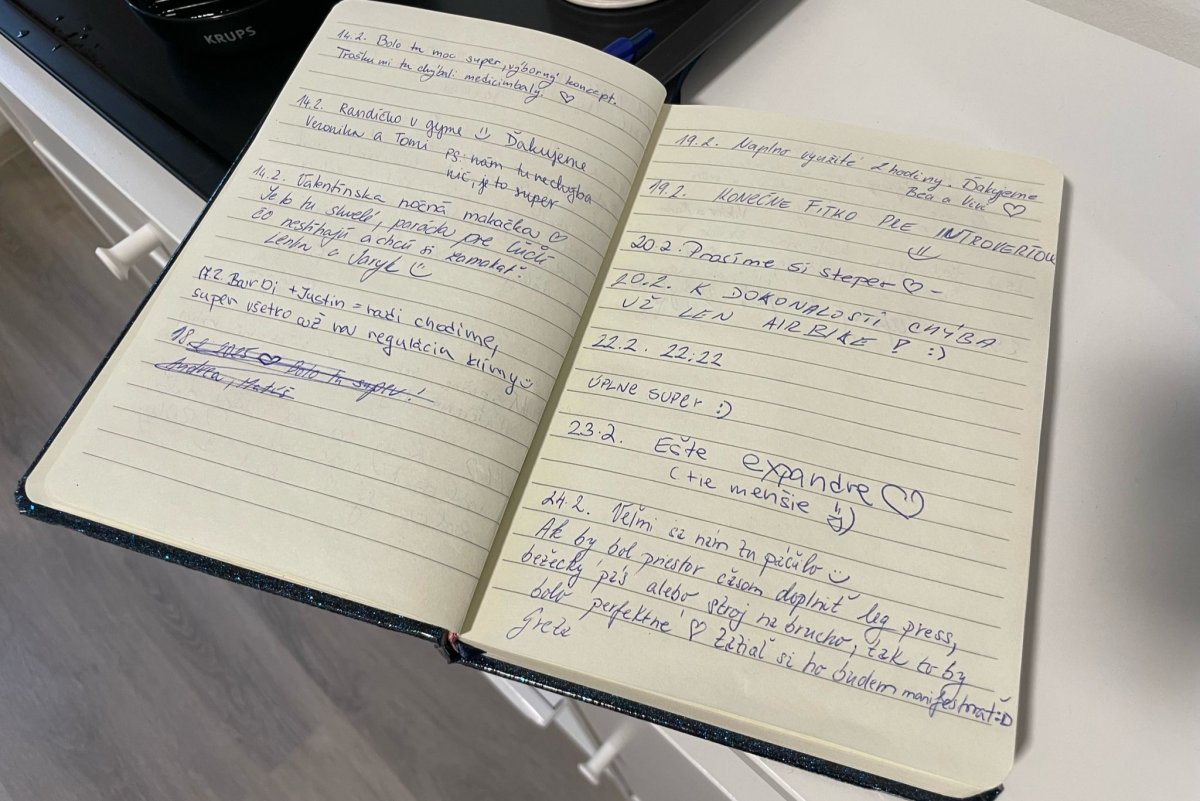 KRUPS
14.2. Bolo tu moc super, výborný koncept.
Trošku mi tu chýbali medicimbaly. ♡
14.2. Randíčko v gyme :) Ďakujeme
Veronika a Tomi PS: nám tu nechýba
nič, je to super
14.2. Valentínska nočná makačka ♡
Je to tu skvelé, paráda pre ľudí
čo nestíhajú a chcú si zamakať.
Lenka a Jaryk :)
17.2. + Justin = radi chodíme,
super všetko až na reguláciu klímy :)
18 ♡ Bolo tu super!
Andrea,
19.2. Naplno využité 2 hodiny. Ďakujeme
Bea a Viki ♡
19.2. KONEČNE FITKO PLE INTROVERTOV
:)
20.2. Prosíme si steper ♡ -
20.2. K DOKONALOSTI CHÝBA
UŽ LEN AIRBIKE! :)
22.2. 22:22
ÚPLNE SUPER :)
23.2. Ešte expandre ♡
(tie menšie :))
24.2. Veľmi sa nám tu páčilo :)
Ak by bol priestor časom doplniť leg press,
bežecký pás alebo stroj na brucho, tak to by
bolo perfektné ♡ Zatiaľ si ho budem manifestovať :D
Greta